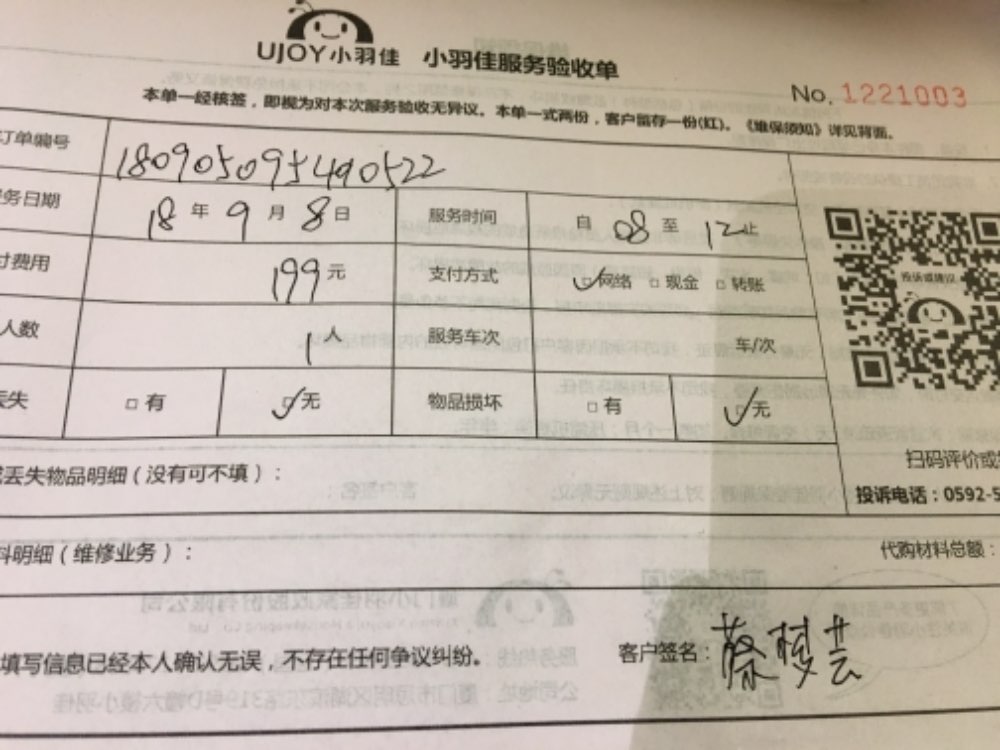 UJOY小羽佳 小羽佳服务验收单
No. 1221003
本单一经核签，即视为对本次服务验收无异议。本单一式两份，客户留存一份(红)。《维保须知》详见背面。
订单编号 180905095490522
务日期 18 年 9 月 8 日 服务时间 自 08 至 12 止
付费用 199 元 支付方式 网络 现金 转账
人数 1人 服务车次 车/次
丢失 有 无 物品损坏 有 无
投诉或建议
扫码评价或
丢失物品明细（没有可不填）：
投诉电话：0592-5
料明细（维修业务）： 代购材料总额：
填写信息已经本人确认无误，不存在任何争议纠纷。 客户签名：蔡